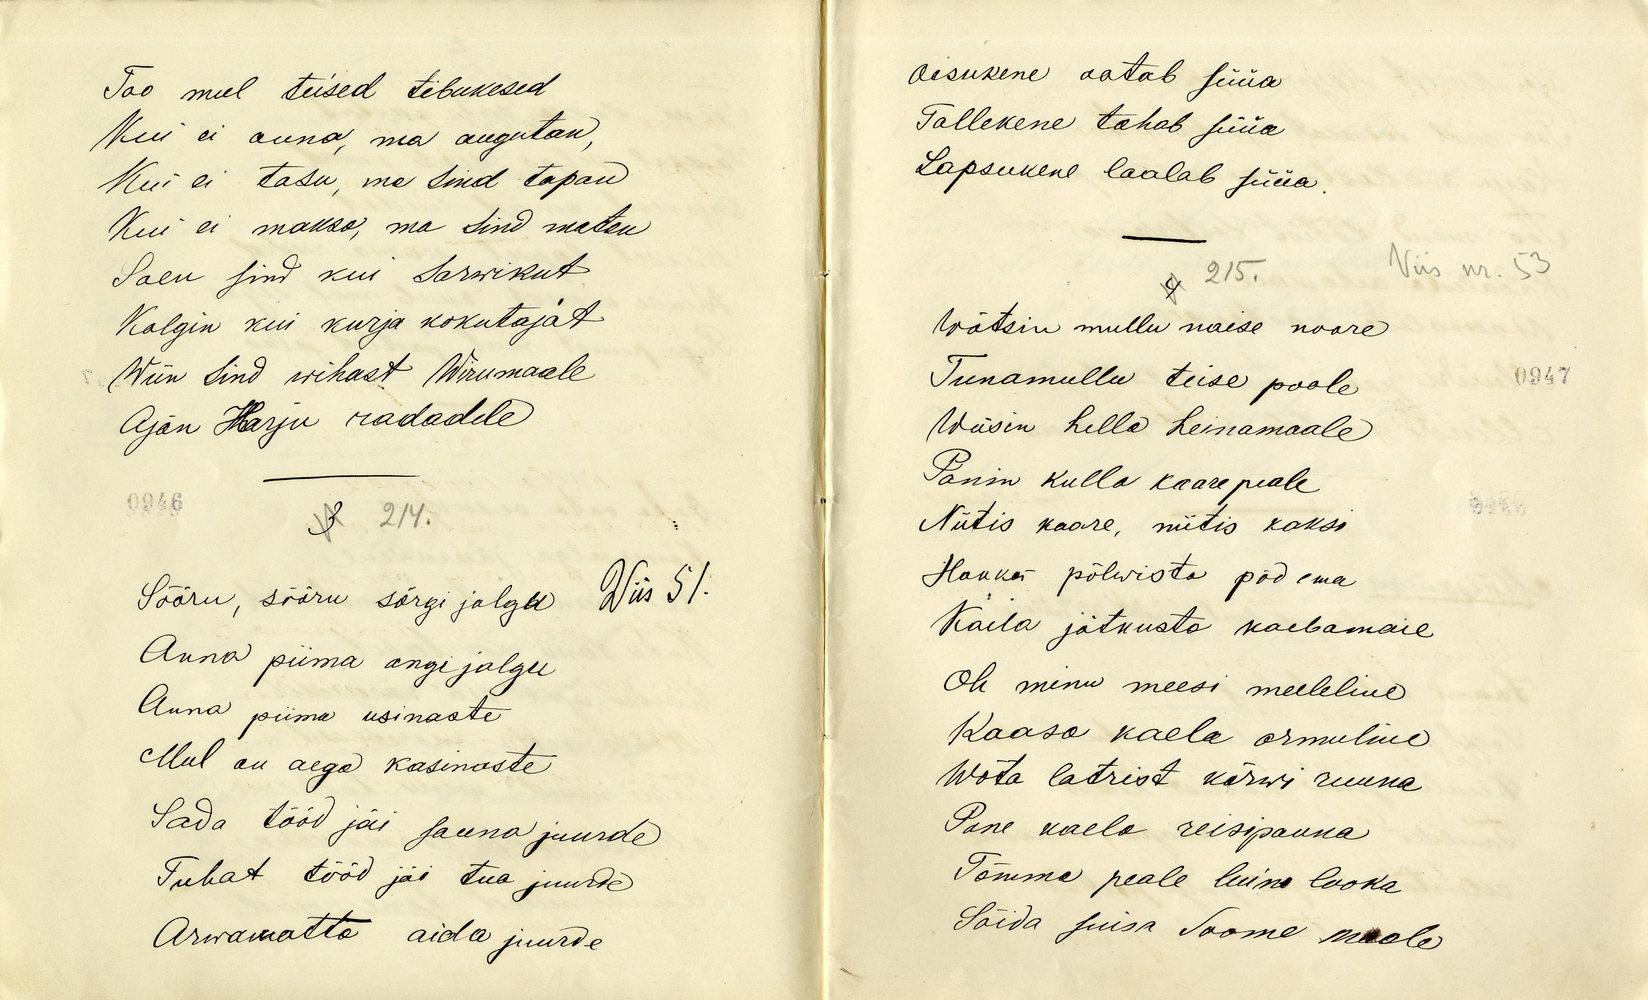 Too mul teised tibukesed
Kui ei anna, ma augutan,
Kui ei tasu, ma sind tapan
Kui ei maksa, ma sind matan
Saen sind kui sarwikut
Kolgin kui kurja kokutajat
Wiin sind wihast Wirumaale
Ajan Harju radadele
0946
3 214.
Sõõru, sõõru sõrgi jalgu Viis 51.
Anna piima angi jalgu
Anna piima usinaste
Mul on aega kasinaste
Sada tööd jäi sauna juurde
Tuhat tööd jäi tua juurde
Arwamatta aida juurde
Oisukene ootab süüa
Tallekene tahab süüa
Lapsukene laalab süüa.
4 215. Viis nr. 53
Wõtsin mullu naise noore
Tunamullu teise poole
Wiisin hella heinamaale
Panin kulla kaare peale
0947
Niitis kaare, niitis kaksi
Hakkas põlwista põdema
Kaela jätkusta kaebamaie
Oh minu meesi meeleline
Kaasa kaela armuline
Wõta latrist kõrwi ruuna
Pane kaela reisipauna
Tõmma peale luine looka
Sõida suisa Soome maale